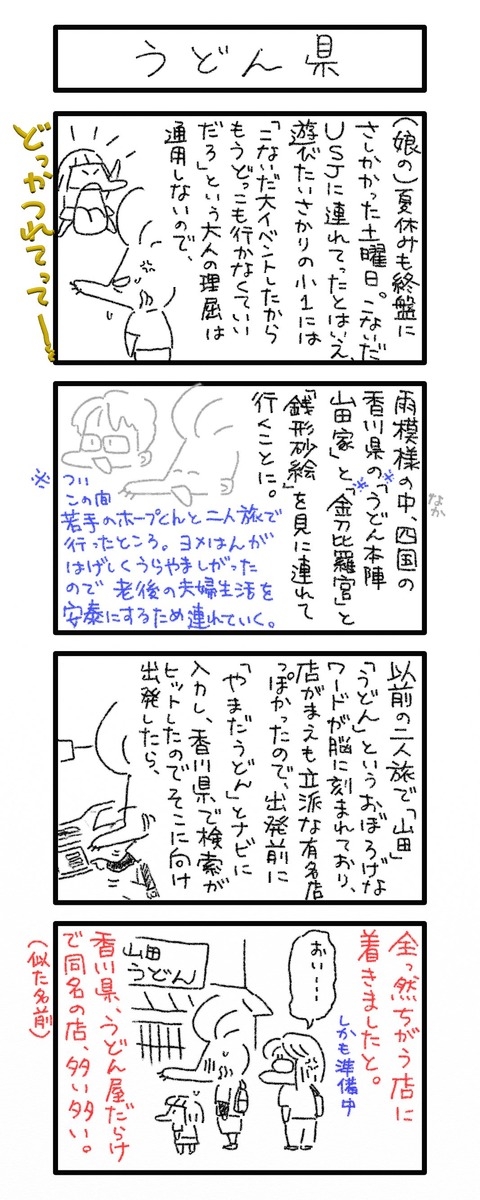 うどん県
(娘の)夏休みも終盤に
さしかかった土曜日。こないだ
USJに連れてったとはいえ、
遊びたいさかりの小1には
「こないだ大イベントしたから
もうどっこも行かなくていい
だろ」という大人の理屈は
通用しないので、
どっかつれてってー!
雨模様の中、四国の
なか
香川県の「うどん本陣
山田家」と「金刀比羅宮」と
「銭形砂絵」を見に連れて
行くことに。
※
※
※
つい
この間
若手のホープくんと二人旅で
行ったところ。ヨメはんが
はげしくうらやましがった
ので 老後の夫婦生活を
安泰にするため連れていく。
以前の二人旅で「山田」
「うどん」というおぼろげな
ワードが脳に刻まれており、
店がまえも立派な有名店
っぽかったので、出発前に
「やまだうどん」とナビに
入力し、香川県で検索が
ヒットしたのでそこに向け
出発したら、
全っ然ちがう店に
着きましたと。
しかも準備中
おい…
山田
うどん
香川県、うどん屋だらけ
で同名の店、多い多い。
(似た名前)